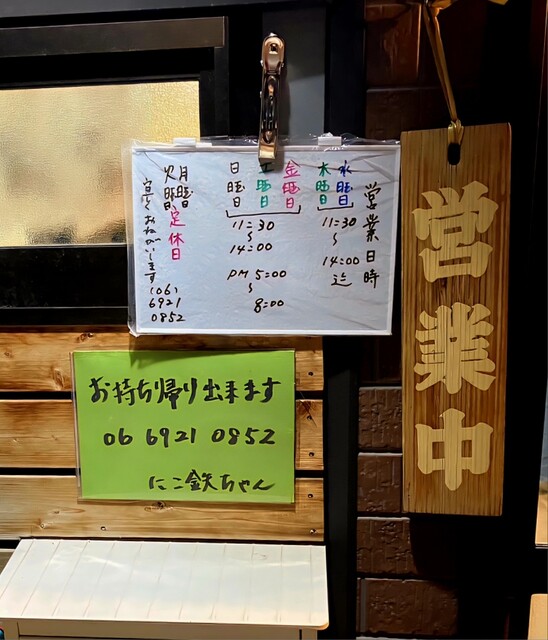 営業日時
水曜日
木曜日
11:30
〜
14:00
迄
金曜日
土曜日
日曜日
11:30
〜
14:00
PM 5:00
〜
8:00
月曜日
火曜日
定休日
宜しくおねがいします
(06)
6921
0852
お持ち帰り出来ます
06 6921 0852
にこ鉄ちゃん
営業中